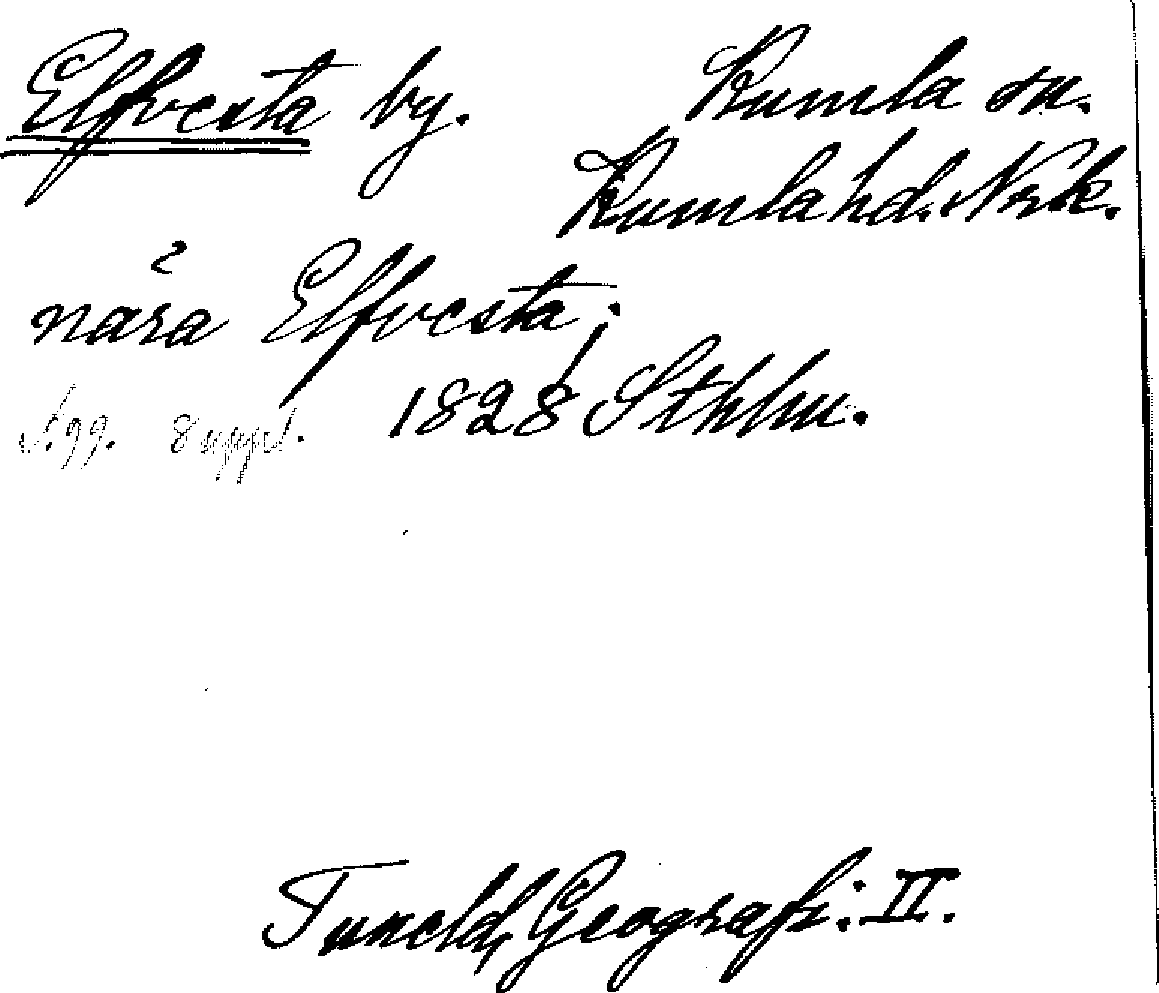 Elfvesta by. Kumla sn.
Kumla hd. Nrk.
nära Elfvesta;
1828 Sthlm.
s. 99. 8 uppl.
Tuneld, Geografi: II.